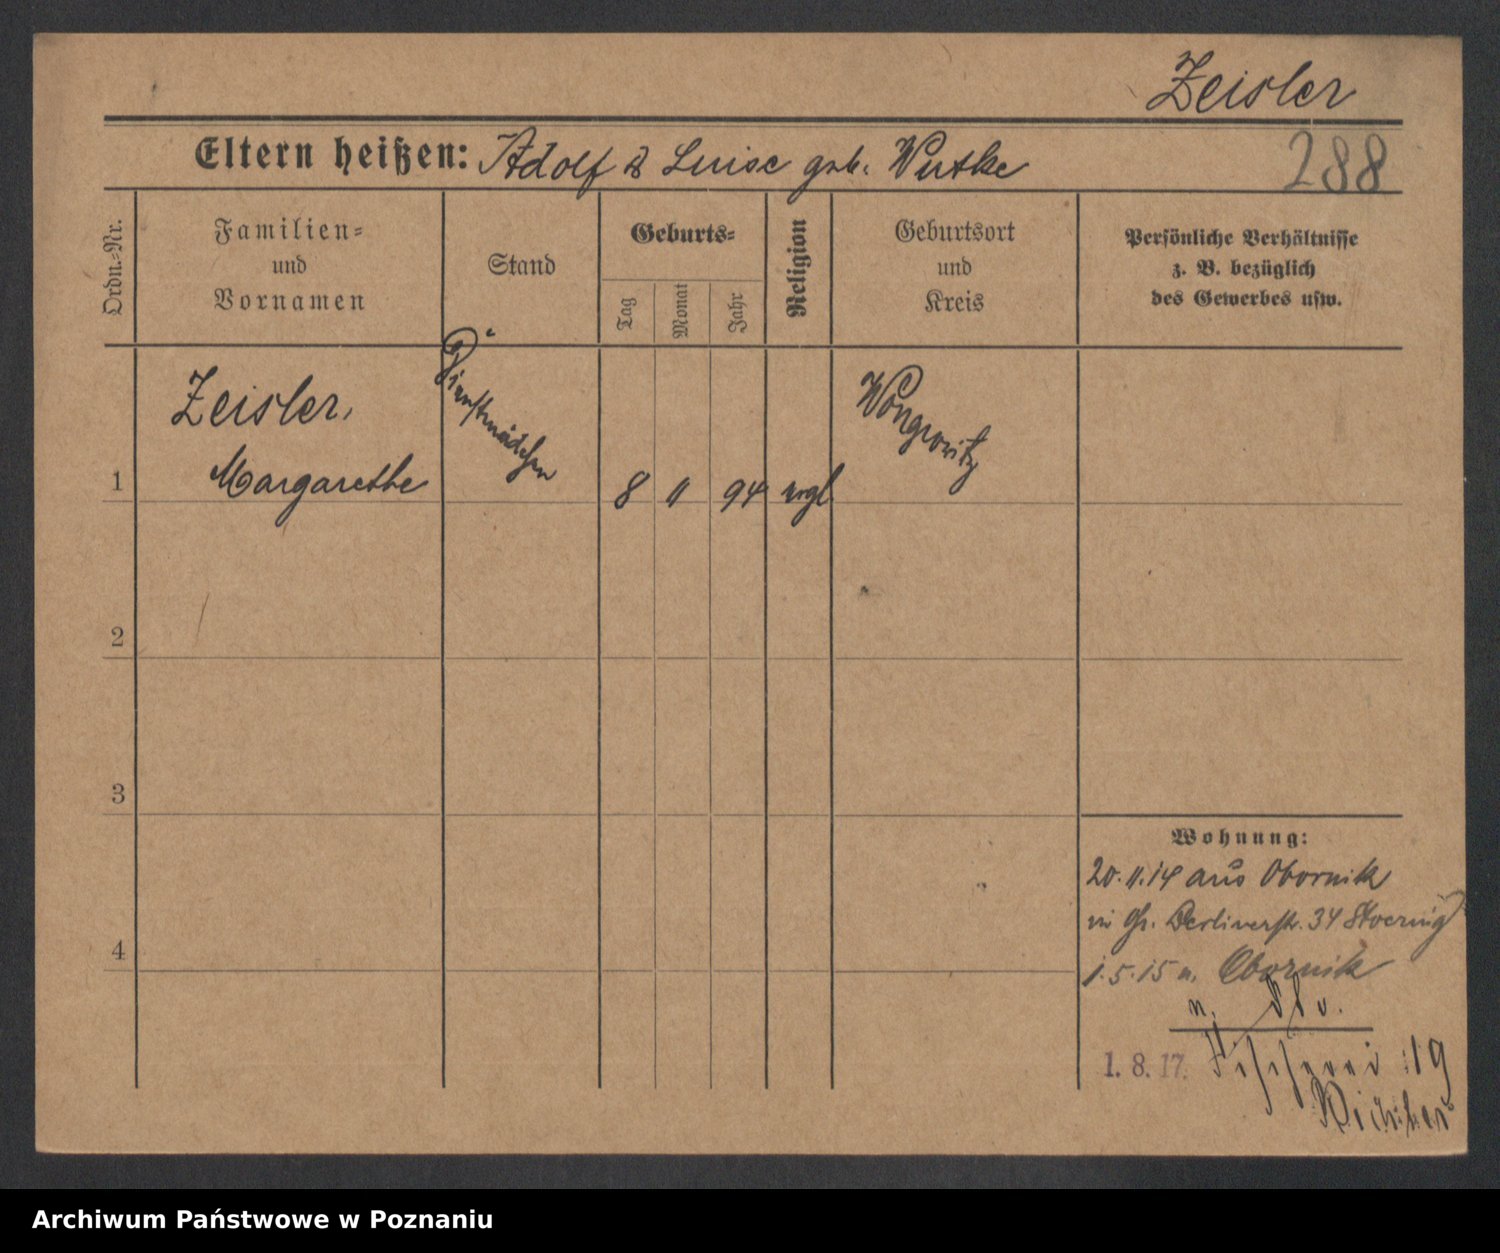 Zeisler
Eltern heißen: Adolf & Luise geb. Wutke
288
Ordn.-Nr.
Familien-
und
Vornamen
Stand
Geburts-
Tag
Monat
Jahr
Religion
Geburtsort
und
Kreis
Persönliche Verhältnisse
z. B. bezüglich
des Gewerbes usw.
1
Zeisler,
Margarethe
Dienstmädchen
8 11 94 evgl
Wongrowitz
2
3
4
Wohnung:
20.11.14 aus Obornik
in Gr. Berlinerstr. 34 Stoering
1.5.15 n. Obornik
n.
1. 8. 17. Fischerei 19